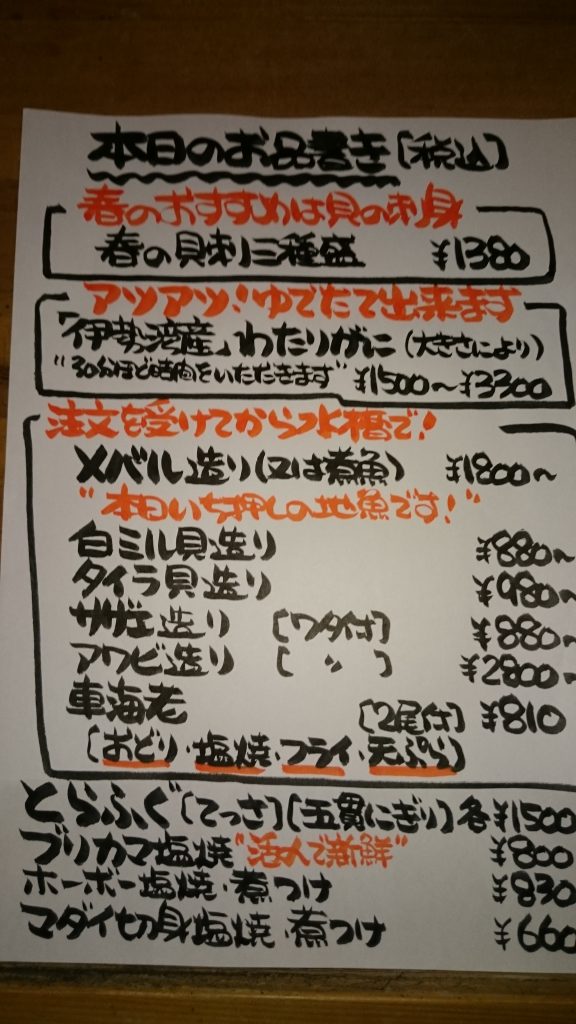 本日のお品書き[税込]
春のおすすめは貝の刺身
春の貝刺三種盛 ¥1380
アツアツ!ゆでたて出来ます
「伊勢湾産」わたりがに(大きさにより)
"30分ほど時間をいただきます" ¥1500〜¥3300
注文を受けてから水槽で!
メバル造り(又は煮魚) ¥1800〜
"本日いち押しの地魚です!"
白ミル貝造り ¥880〜
タイラ貝造り ¥980〜
サザエ造り [ワタ付] ¥880〜
アワビ造り [ 〃 ] ¥2800〜
車海老 [2尾付] ¥810
[おどり・塩焼・フライ・天ぷら]
とらふぐ[てっさ][五貫にぎり]各¥1500
ブリカマ塩焼"活〆で新鮮" ¥800
ホーボー塩焼・煮つけ ¥830
マダイ切身塩焼・煮つけ ¥660